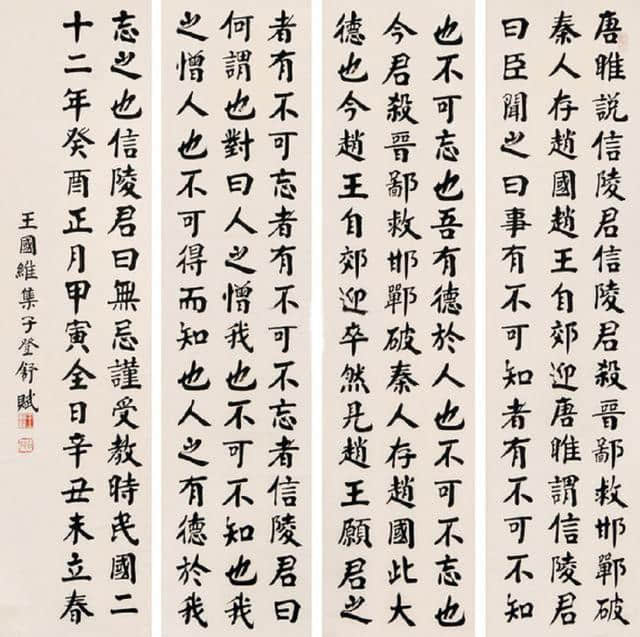 唐雎説信陵君信陵君殺晉鄙救邯鄲破
秦人存趙國趙王自郊迎唐雎謂信陵君
曰臣聞之曰事有不可知者有不可不知
也不可忘也吾有德於人也不可不忘也
今君殺晉鄙救邯鄲破秦人存趙國此大
德也今趙王自郊迎卒然見趙王願君之
者有不可忘者有不可不忘者信陵君曰
何謂也對曰人之憎我也不可不知也我
之憎人也不可得而知也人之有德於我
忘之也信陵君曰無忌謹受教時民國二
十二年癸酉正月甲寅全日辛丑未立春
王國維集子登舒賦